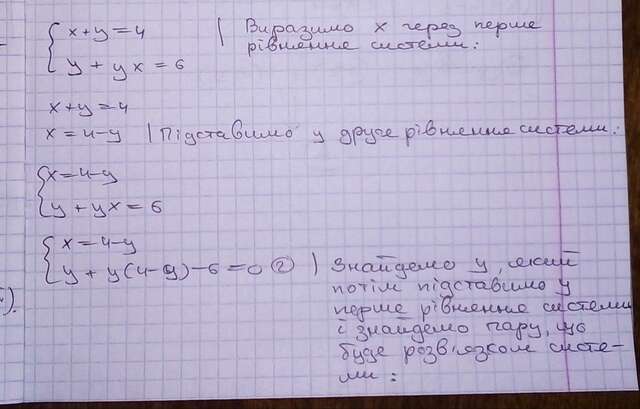 { x+y=4 | Виразимо x через перше
рівняння системи:
y + yx = 6
x+y=4
x=4-y | Підставимо у друге рівняння системи:
{ x=4-y
y + yx = 6
{ x=4-y
y + y(4-y)-6=0 ② | Знайдемо y, який
потім підставимо у
перше рівняння системи
і знайдемо пару, що
буде розв'язком систе-
ми: